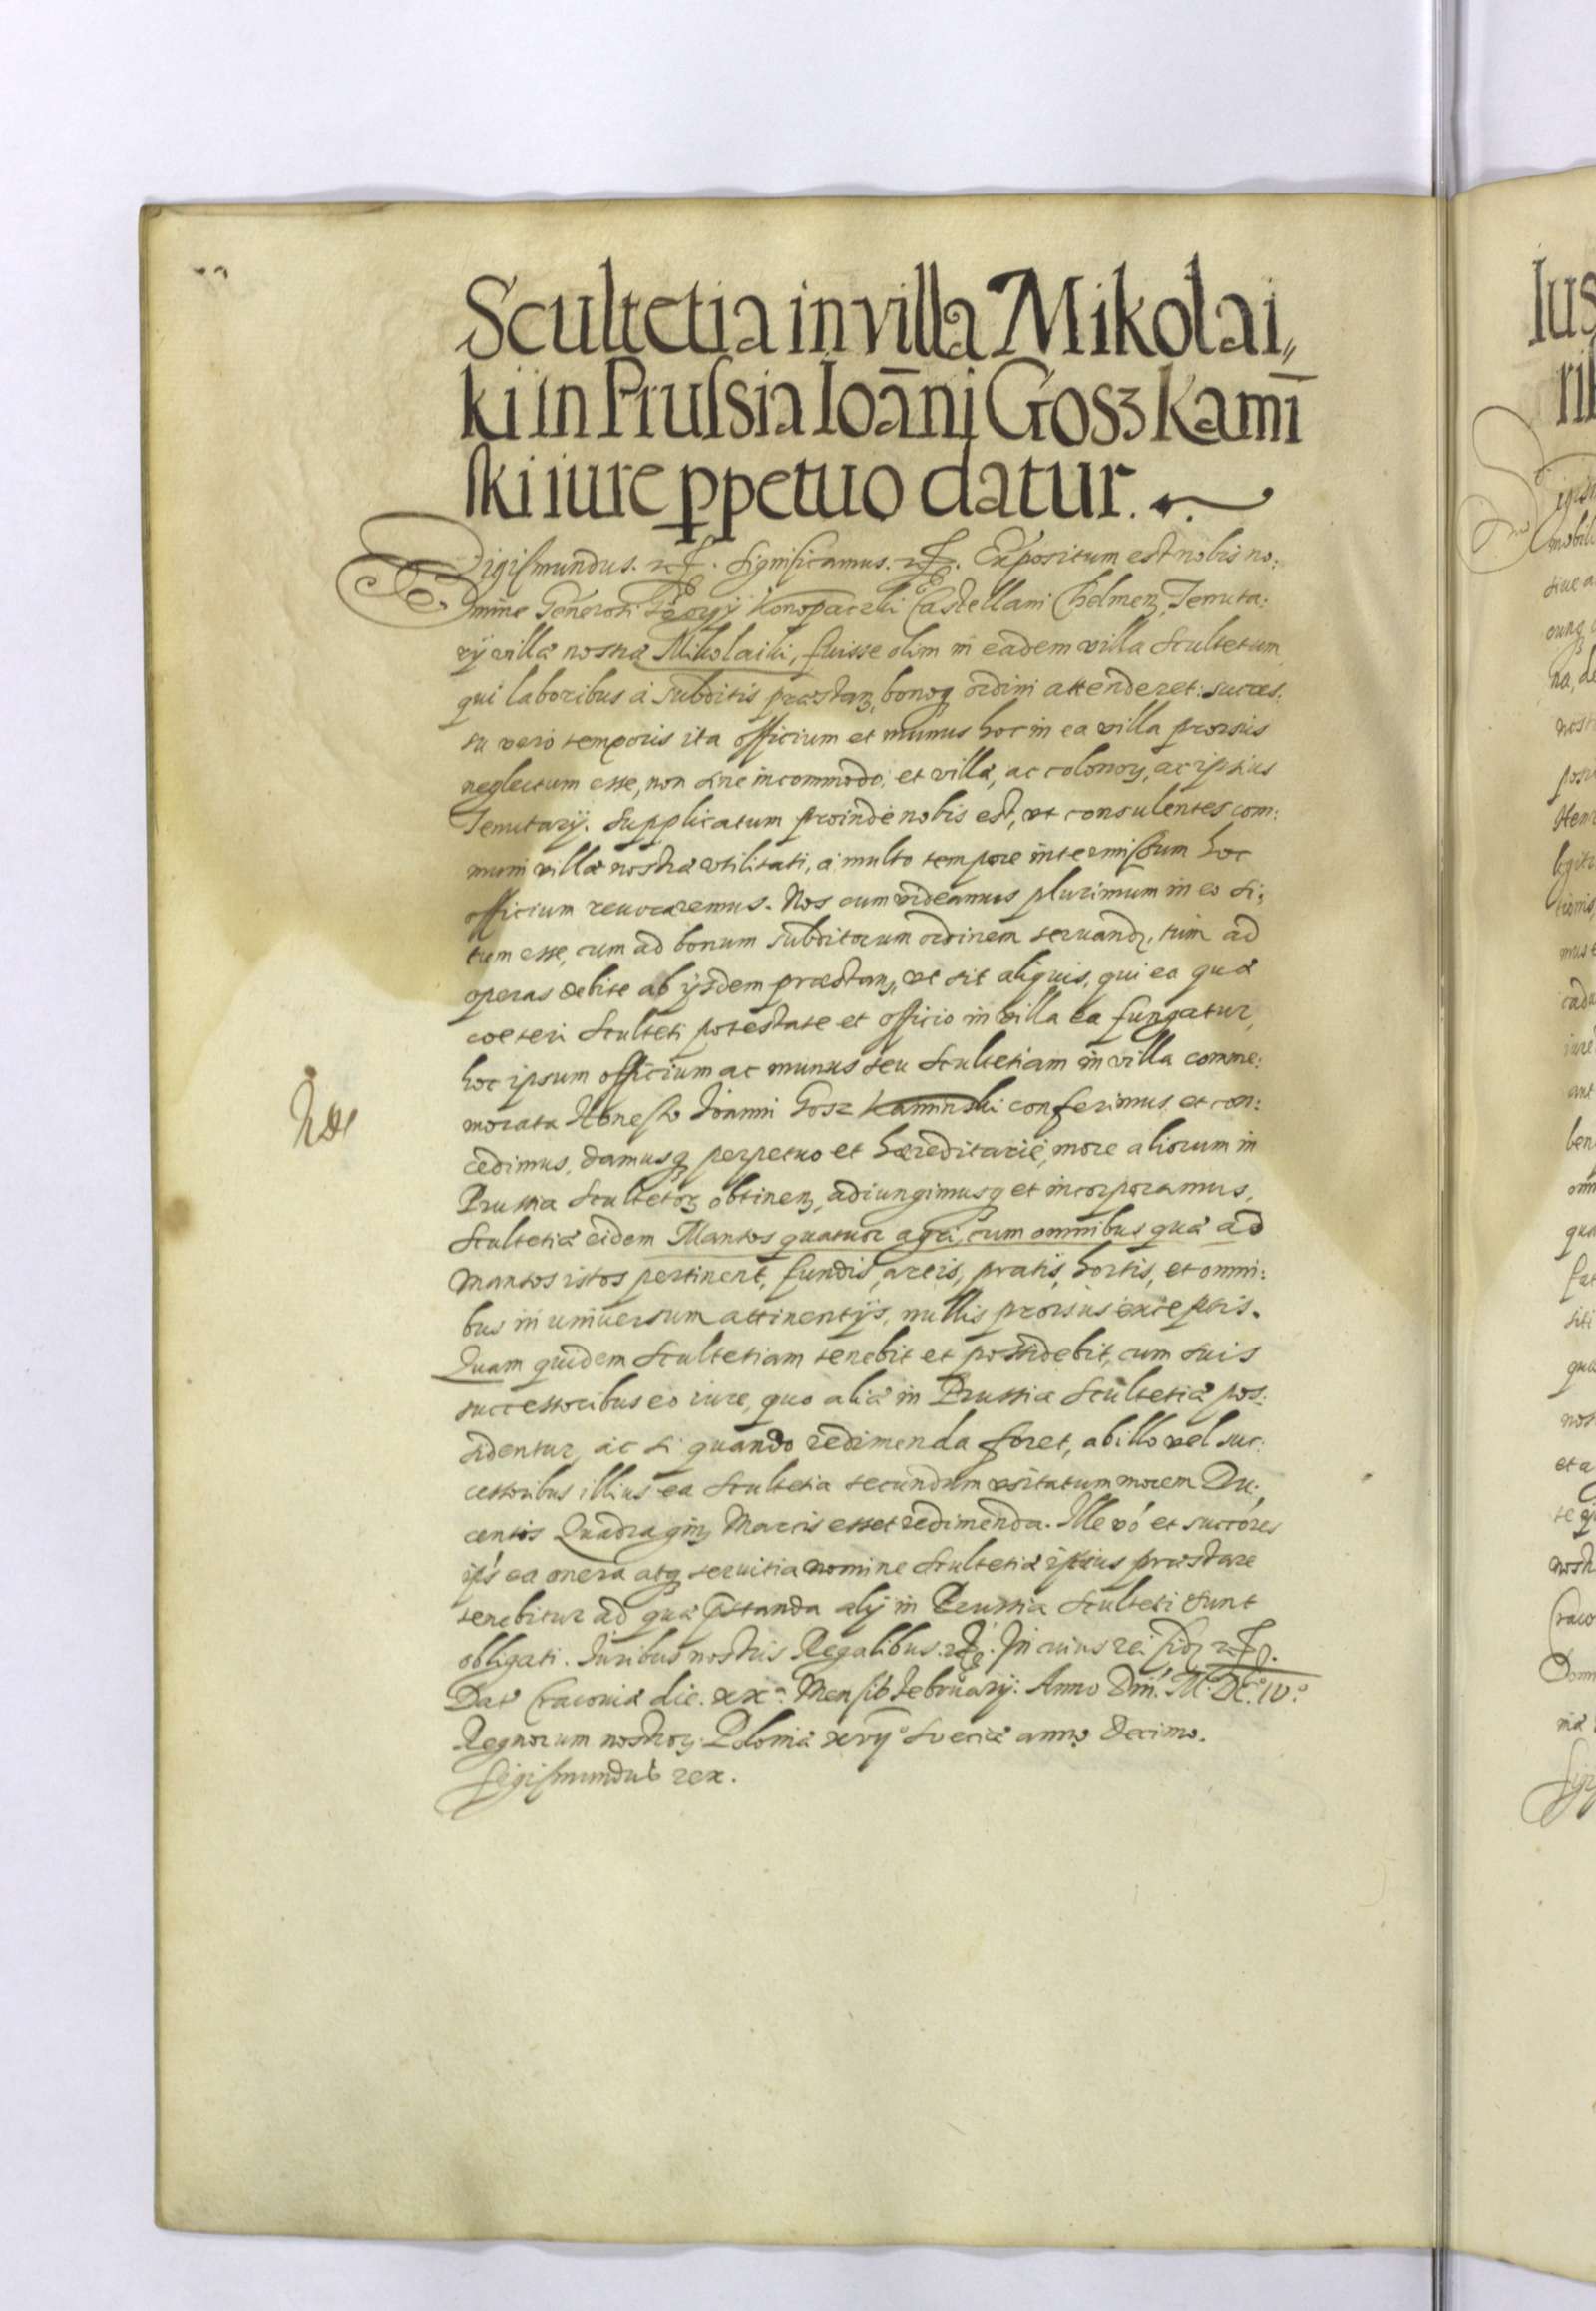 Scultetia in villa Mikolai„
ki in Prussia Ioāni Gosz Kamī
ski iure ppetuo datur.
Sigismundus. etc. Significamus. etc. Expositum est nobis no:
mine Generosi Georgij Konopaczki Castellani Chelmen. Tenuta:
rij villæ nostræ Mikolaiki, fuisse olim in eadem villa Scultetum
qui laboribus à subditis præstan, bonoq ordini attenderet: succes:
su vero temporis ita officium et munus hoc in ea villa prorsus
neglectum esse, non sine incommodo, et villæ, ac colonor, ac ipsius
Tenutarij. Supplicatum proinde nobis est, vt consulentes com:
muni villæ nostræ vtilitati, à multo tempore intermissum hoc
officium reuocaremus. Nos cum videamus plurimum in eo si:
tum esse, cum ad bonum subditorum ordinem seruand, tum ad
operas debite ab ijsdem præstan, vt sit aliquis, qui ea qua
cœteri Sculteti potestate et officio in villa ea fungatur,
hoc ipsum officium ac munus seu Scultetiam in villa comme:
morata Honesto Ioanni Gosz Kaminski conferimus et con:
cedimus, damusq perpetuo et hæreditariè, more aliorum in
Prussia Scultetor obtinen, adiungimusq et incorporamus,
Scultetiæ eidem Mansos quatuor agri, cum omnibus quæ ad
mansos istos pertinent, fundis, areis, pratis, hortis, et omni:
bus in uniuersum attinentijs, nullis prorsus exceptis.
Quam quidem Scultetiam tenebit et possidebit, cum suis
successoribus eo iure, quo aliæ in Prussia Scultetiæ pos:
sidentur, ac si quando redimenda foret, ab illo vel suc:
cessoribus illius ea Scultetia secundum vsitatum morem Du:
centis Quadragin Marcis esset redimenda. Ille vó et succores
ips ea onera atq seruitia nomine Scultetiæ ipsius præstare
tenebitur ad quæ pstanda alij in Prussia Sculteti sunt
obligati. Iuribus nostris Regalibus. etc. In cuius rei fid etc.
Dat Cracouiæ die. xx.ª Mensis Februarij. Anno Dni. M. DC. IV.º
Regnorum nostror Poloniæ xvij.º Sueciæ anno decimo.
Sigismundus rex.